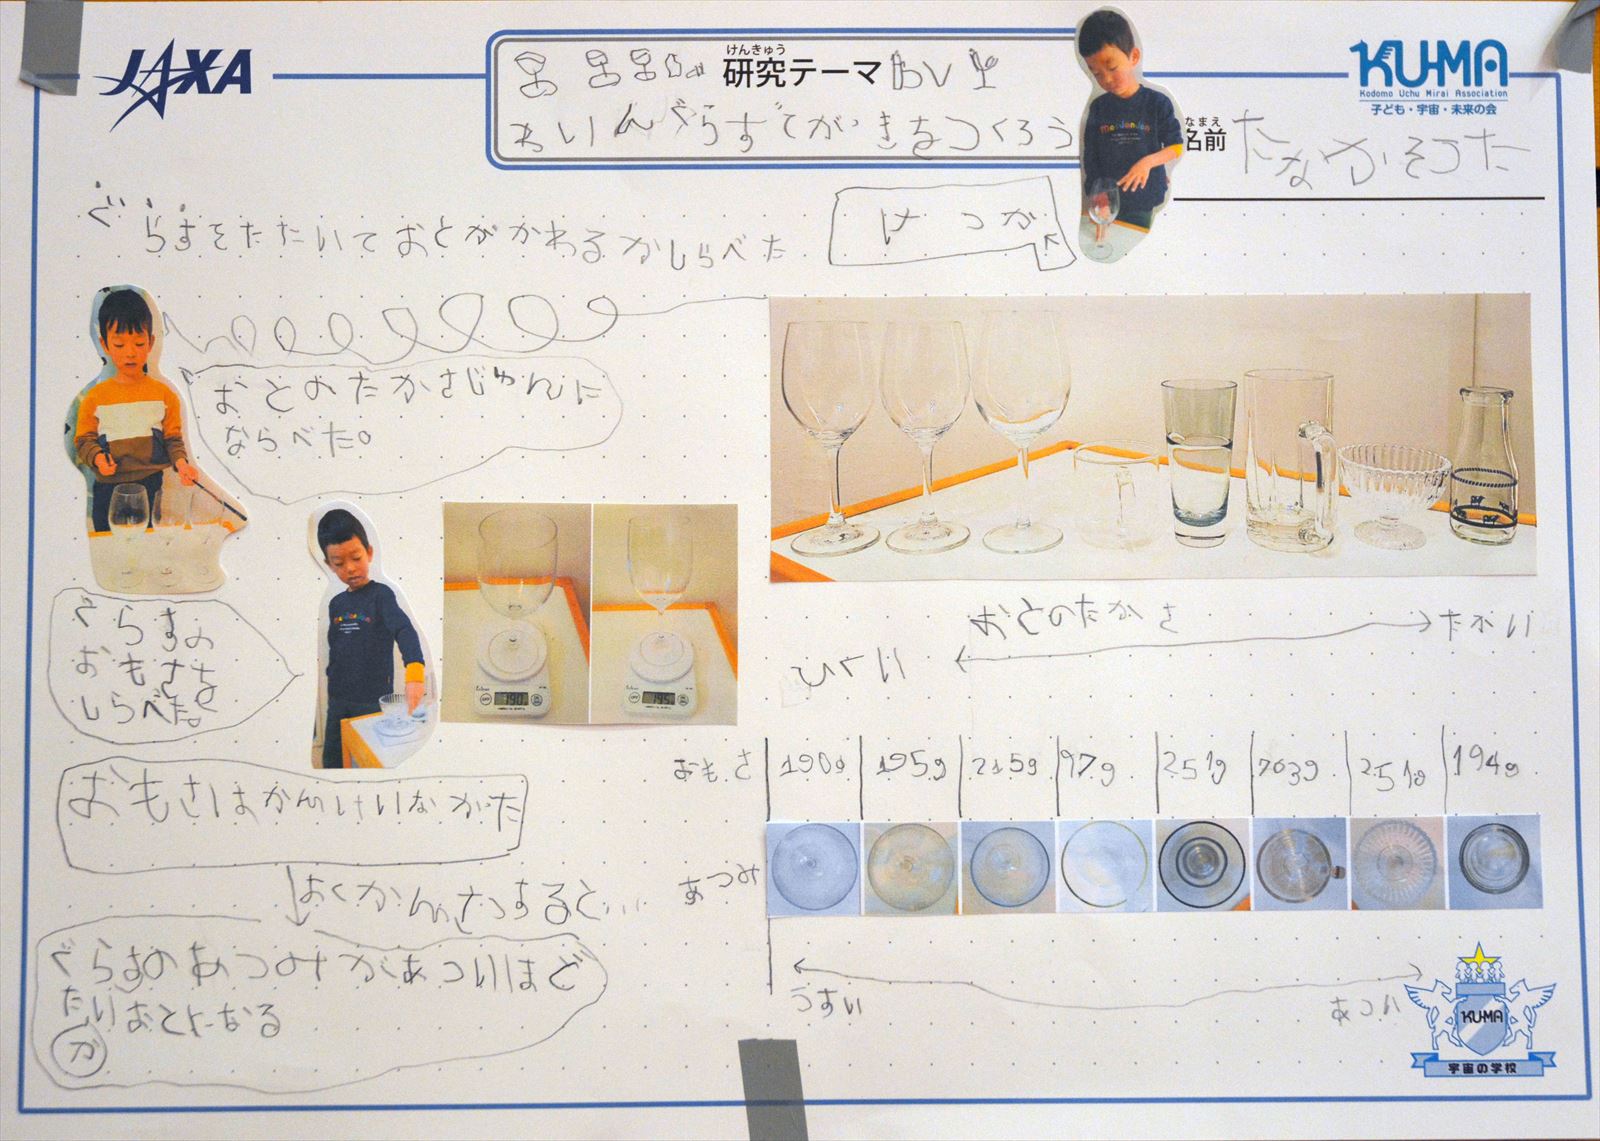 JAXA
けんきゅう
研究テーマ
わいんぐらすでがっきをつくろう
KU-MA
Kodomo Uchu Mirai Association
子ども・宇宙・未来の会
なまえ
名前
たなかそうた
ぐらすをたたいておとがかわるかしらべた
けっか
おとのたかさじゅんに
ならべた。
ぐらすの
おもさを
しらべた。
おとのたかさ
ひくい
たかい
おもさ
190g
195g
215g
97g
251g
703g
251g
194g
おもさはかんけいなかた
よくかんさつすると…
あつみ
ぐらすのあつみがあついほど
たいおとになる
か
うすい
あつい
KU-MA
宇宙の学校